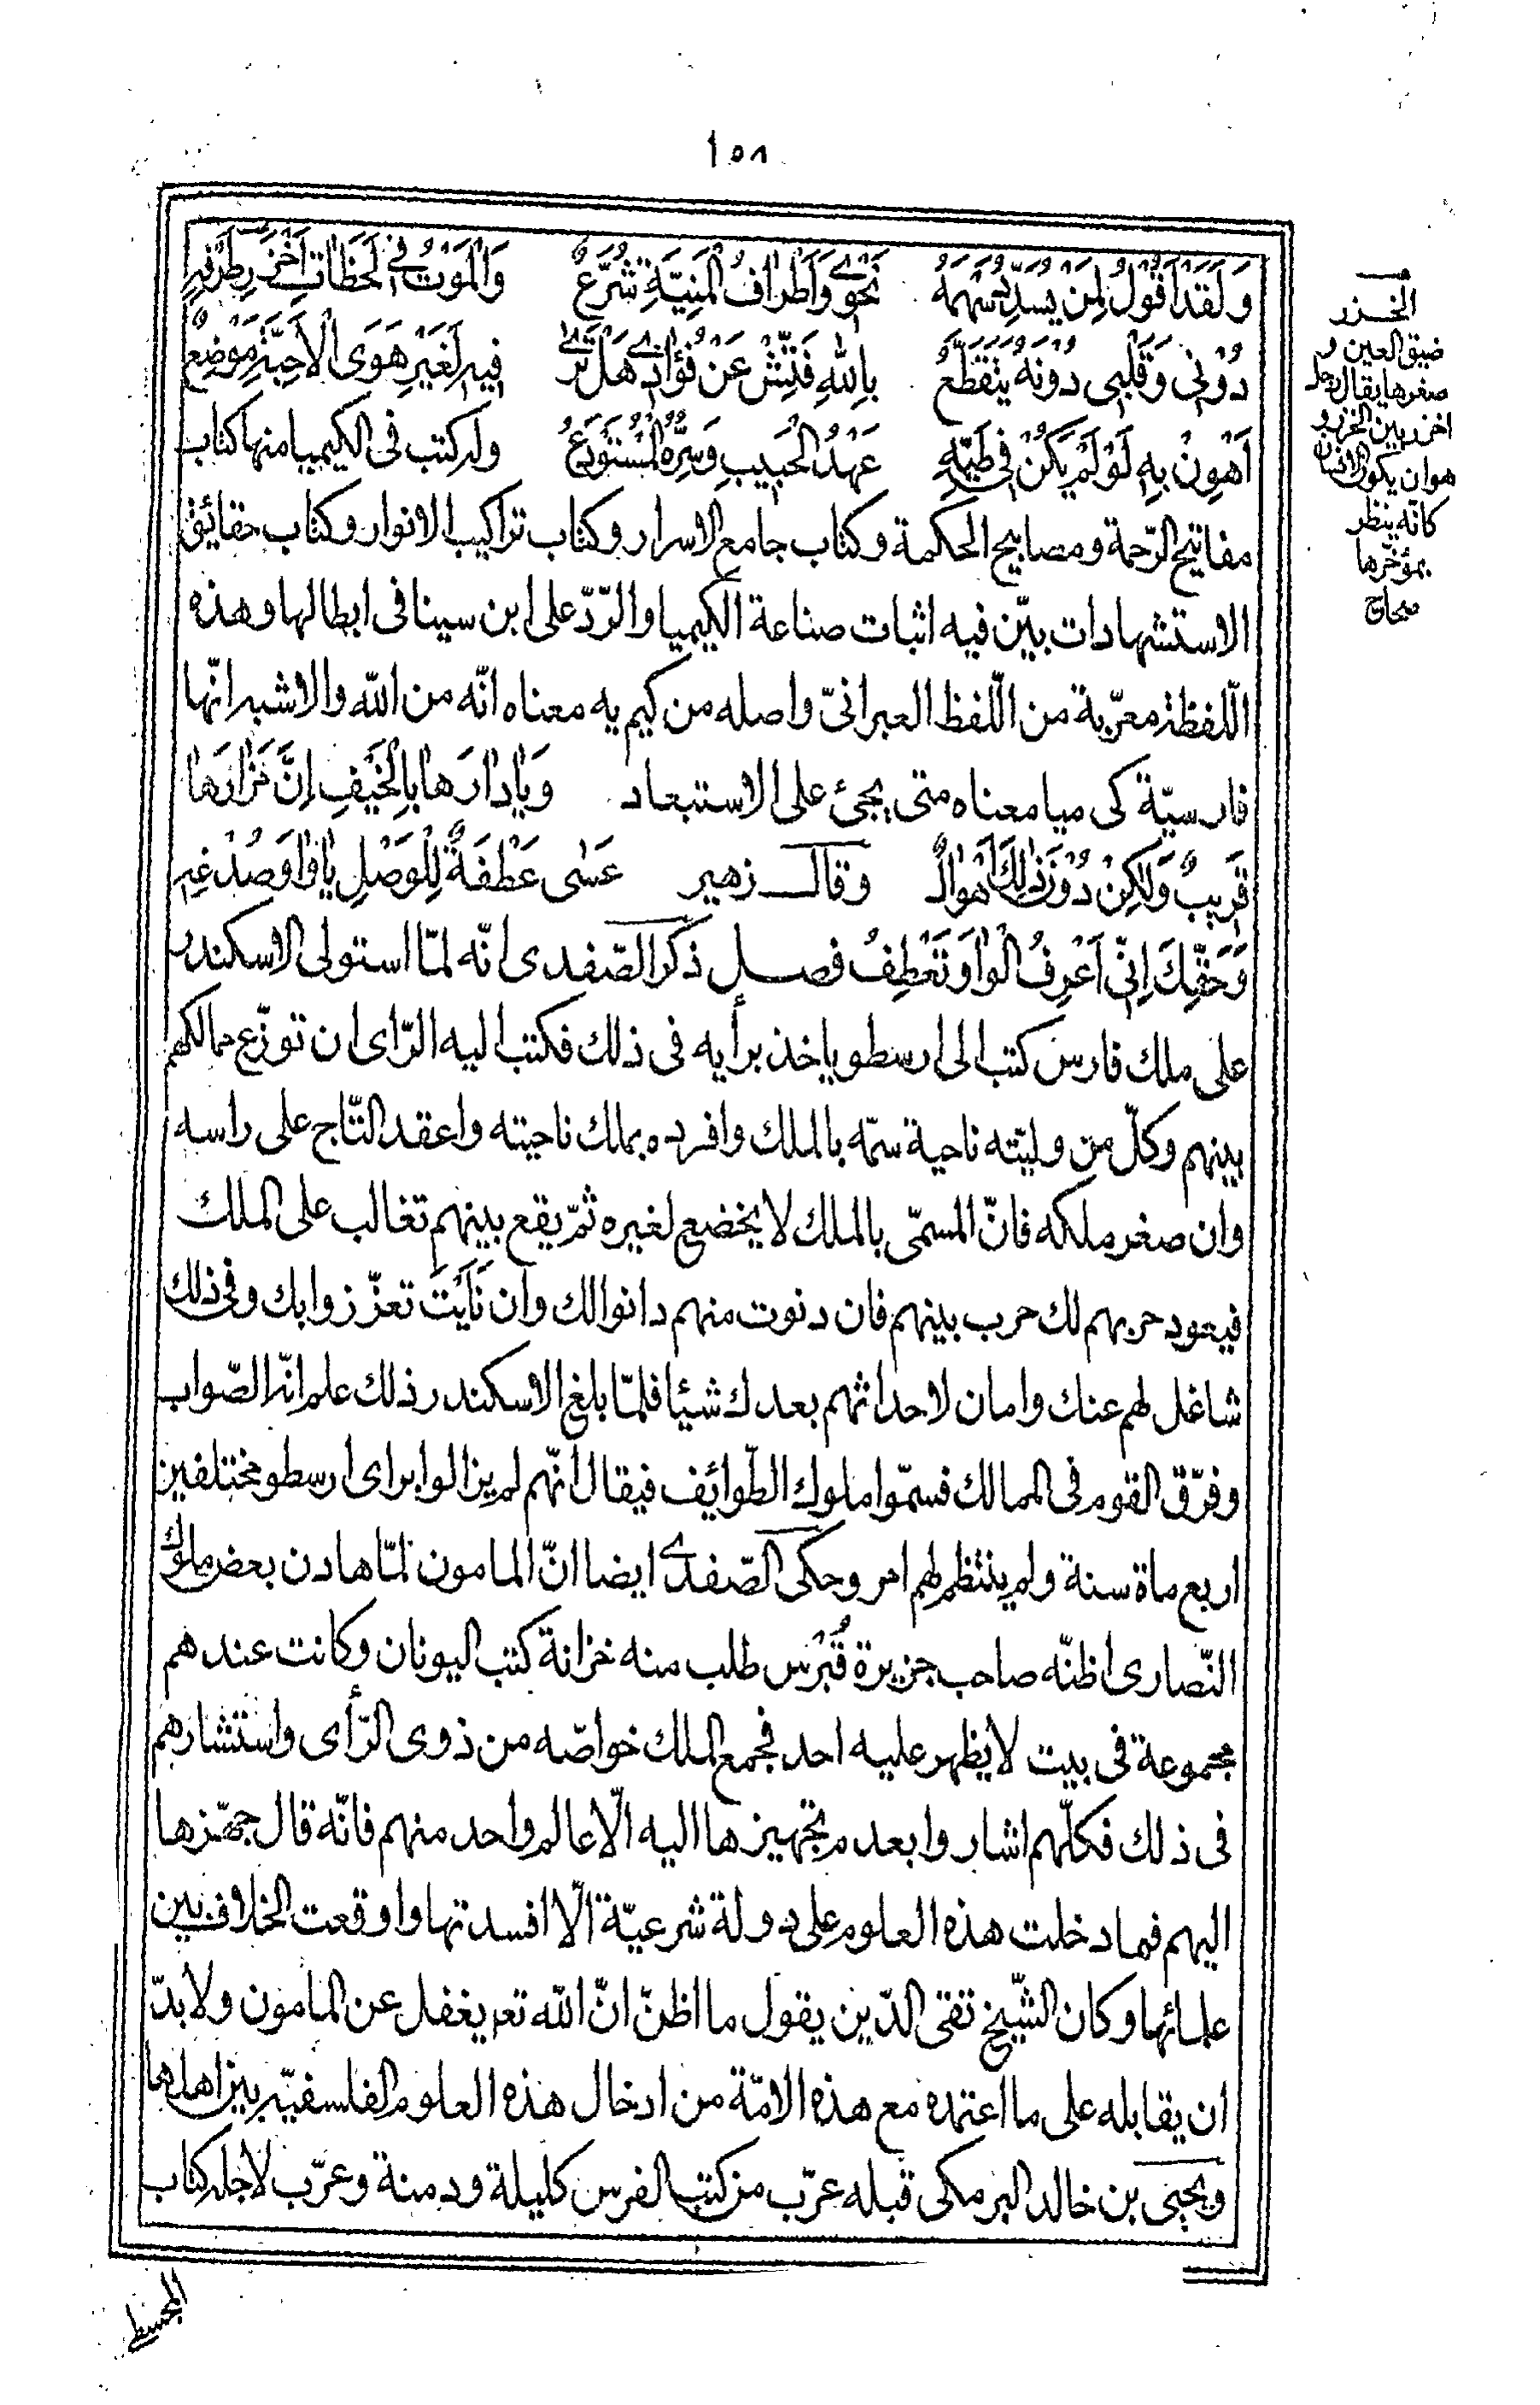 ١٥٨
وَلَقَدْ اَقُولُ لِمَنْ يُسَدِّدُ سَهْمَهُ نَحْوِى وَاَطْرَافُ الْمَنِيَّةِ شُرَّعٌ وَالْمَوْتُ فِى لَحَظَاتِ اَخْزَرِ طَرْفِهِ
دُوْنِى وَقَلْبِى دُوْنَهُ يَتَقَطَّعُ بِاللّٰهِ فَتِّشْ عَنْ فُؤَادِى هَلْ تَرٰى فِيهِ لِغَيْرِ هَوَى الْاَحِبَّةِ مَوْضِعٌ
اَهْوِنْ بِهِ لَوْ لَمْ يَكُنْ فِى طَيِّهِ عَهْدُ الْحَبِيبِ وَسِرُّهُ الْمُسْتَوْدَعُ وله كتب فى الكيميا منها كتاب
مفاتيح الرّحمة ومصابيح الحكمة وكتاب جامع الاسرار وكتاب تراكيب الانوار وكتاب حقايق
الاستشهادات بيّن فيه اثبات صناعة الكيميا والرّدّ على ابن سينا فى ابطالها وهذه
اللّفظة معرّبة من اللّفظ العبرانىّ واصله من كيم يه معناه انّه من اللّه والاشبه انّها
فارسيّة كى ميا معناه متى يجئ على الاستبعاد وَيَا دَارَهَا بِالْخَيْفِ اِنَّ مَزَارَهَا
قَرِيبٌ وَلٰكِنْ دُوْنَ ذٰلِكَ اَهْوَالٌ وقال زهير عَسٰى عَطْفَةٌ لِلْوَصْلِ يَا وَاوَ صُدْغِهِ
وَحَقِّكَ اِنِّى اَعْرِفُ الْوَاوَ تَعْطِفُ فصل ذكر الصّفدى انّه لمّا استولى الاسكندر
على ملك فارس كتب الى ارسطو ياخذ برأيه فى ذلك فكتب اليه الرّاى ان توزّع ممالكهم
بينهم وكلّ من وليّته ناحية سمّه بالملك وافرده بملك ناحيته واعقد التّاج على راسه
وان صغر ملكه فانّ المسمّى بالملك لا يخضع لغيره ثمّ يقع بينهم تغالب على الملك
فيعود حربهم لك حرب بينهم فان دنوت منهم دانوا لك وان نَاَيْتَ تعزّزوا بك وفى ذلك
شاغل لهم عنك وامان لاحداثهم بعدك شيئا فلمّا بلغ الاسكندر ذلك علم انّه الصّواب
وفرّق القوم فى الممالك فسمّوا ملوك الطّوايف فيقال انّهم لم يزالوا براى ارسطو مختلفين
اربع ماة سنة ولم ينتظم لهم امر وحكى الصّفدى ايضا انّ المامون لمّا هادن بعض ملوك
النّصارى اظنّه صاحب جزيرة قُبْرُس طلب منه خزانة كتب اليونان وكانت عندهم
مجموعة فى بيت لا يظهر عليه احد فجمع الملك خواصّه من ذوى الرّأى واستشارهم
فى ذلك فكلّهم اشاروا بعدم تجهيزها اليه الّا عالم واحد منهم فانّه قال جهّزها
اليهم فما دخلت هذه العلوم على دولة شرعيّة الّا افسدتها واوقعت الخلاف بين
علمائها وكان الشّيخ تقى الدّين يقول ما اظنّ انّ اللّه تعـ يغفل عن المامون ولا بدّ
ان يقابله على ما اعتمده مع هذه الامّة من ادخال هذه العلوم الفلسفيّه بين اهلها
ويحيى بن خالد البرمكى قبله عرّب من كتب الفرس كليلة ودمنة وعرّب لاجله كتاب
المجسطى
الخزر
ضيق العين و
صغرها يقال رجل
اخزر بين الخزر و
هو ان يكون الانسان
كانّه ينظر
بمؤخّرها
صحاح